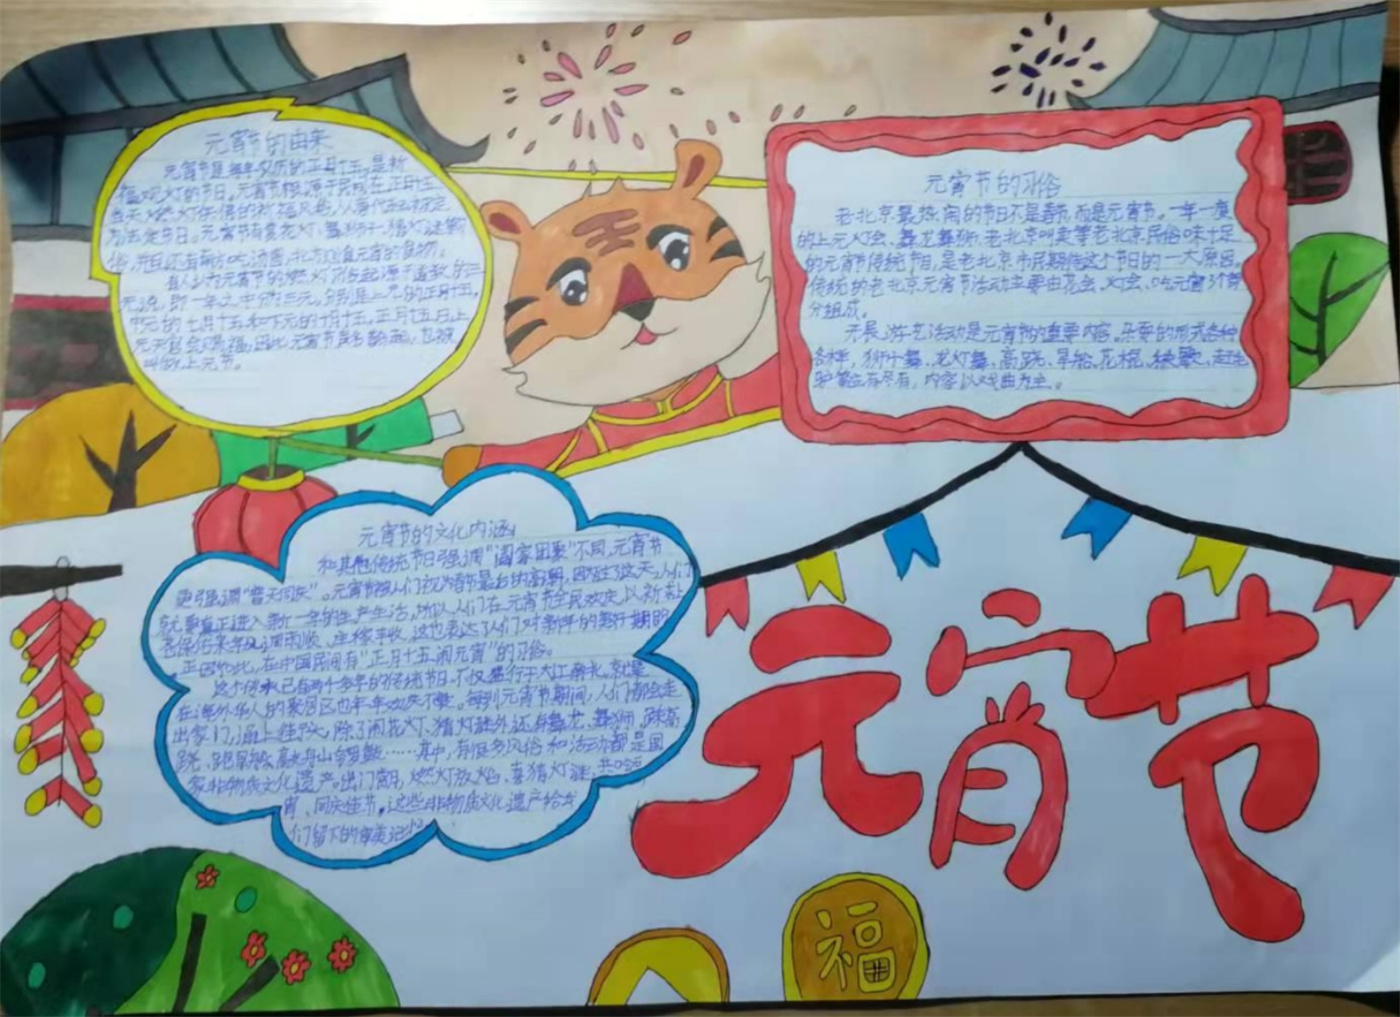 元宵节的由来
元宵节是每年农历的正月十五,是祈
福观灯的节日。元宵节根源于民间在正月十五
为法定节日。元宵节有赏花灯、舞狮子、猜灯谜等
俗,而且还有南方吃汤圆,北方吃食元宵的食物。
有人认为元宵节的燃灯习俗起源于道教的三
元说,即一年之中分三元,分别是上元的正月十五,
中元的七月十五和下元的十月十五,正月十五日上
元天官会赐福,因此元宵节
叫做上元节。
元宵节的习俗
老北京最热闹的节日不是春节,而是元宵节。一年一度
的上元灯会、舞龙舞狮、老北京叫卖等老北京民俗味十足
的元宵节传统节目,是老北京市民期待这个节日的一大原因,
传统的老北京元宵节活动主要由花会、灯会、吃元宵3个部
分组成。
开展游艺活动是元宵节的重要内容。杂耍的形式各种
各样,狮子舞、龙灯舞、高跷、旱船、花棍、秧歌、赶
驴等应有尽有,内容以戏曲为主。
元宵节的文化内涵
和其他传统节日强调“阖家团聚”不同,元宵节
更强调“普天同庆”。元宵节被人们视为春节最后的高潮,因过了这天,人们
就要真正进入新一年的生产生活,所以人们在元宵节全民欢庆,以祈求
老保佑来年风调雨顺、五谷丰收,这也表达了人们对新年的美好期盼
正因如此,在中国民间有“正月十五闹元宵”的习俗。
这个传承已有两千多年的传统节日,不仅盛行于大江南北,就是
在海外华人的聚居区也年年欢庆不衰。每到元宵节期间,人们都会走
出家门,涌上街头,除了闹花灯、猜灯谜外还有舞龙、舞狮、踩高
跷、跑旱船、……其中,有很多风俗和活动都是国
家非物质文化遗产。出门赏月、燃灯放焰、喜猜灯谜、共吃元
宵、同庆佳节。这些非物质文化遗产给我
们留下的审美记忆
元宵节
福